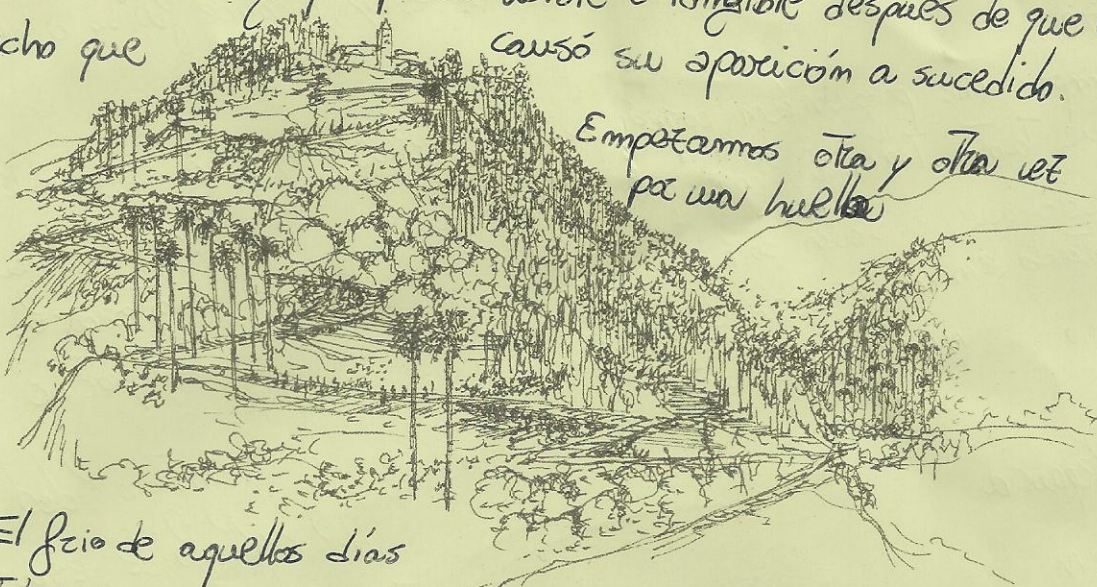 tangible después de que
cho que
causó su aparición a sucedido.
Empezamos otra y otra vez
por una huella
El frio de aquellos días